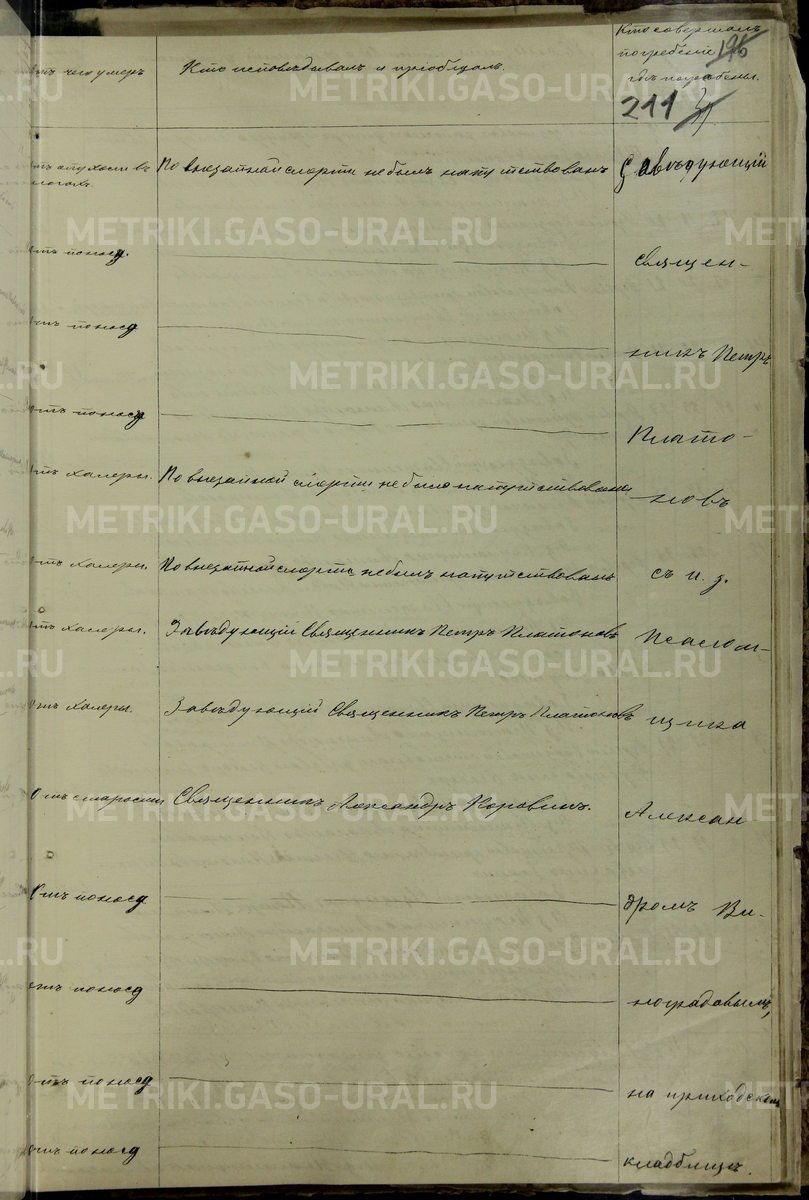 отъ чего умеръ
Кто исповѣдывалъ и пріобщалъ.
Кто совершалъ
погребеніе
гдѣ погребены.
196
211
отъ опухоли въ
ногахъ
По внезапной смерти не былъ напутствованъ
Завѣдующій
отъ поноса.
Священ-
отъ поноса
никъ Петръ
отъ поноса
Плато-
отъ халеры.
По внезапной смерти не было напутствованы
новъ
отъ халеры.
По внезапной смерти не былъ напутствованъ
съ и. д.
отъ халеры.
Завѣдующій Священникъ Петръ Платоновъ
псалом-
отъ халеры.
Завѣдующій Священникъ Петръ Платоновъ
щика
Отъ старости
Священникъ Александръ Коровинъ.
Алексан
Отъ поноса
дромъ Ви-
отъ поноса
ноградовымъ,
отъ поноса
на приходскомъ
отъ поноса
кладбищѣ.
METRIKI.GASO-URAL.RU